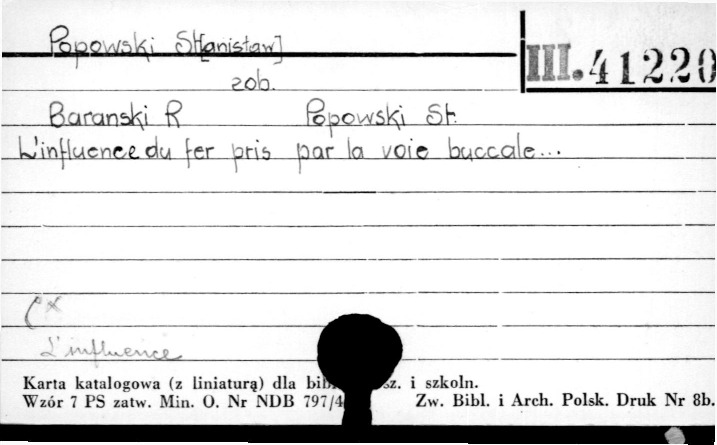 Popowski St[anisław]
III. 41220
zob.
Baranski R Popowski St.
L'influence du fer pris par la voie buccale...
L'influence
Karta katalogowa (z liniaturą) dla sz. i szkoln.
Wzór 7 PS zatw. Min. O. Nr NDB 797/4 Zw. Bibl. i Arch. Polsk. Druk Nr 8b.